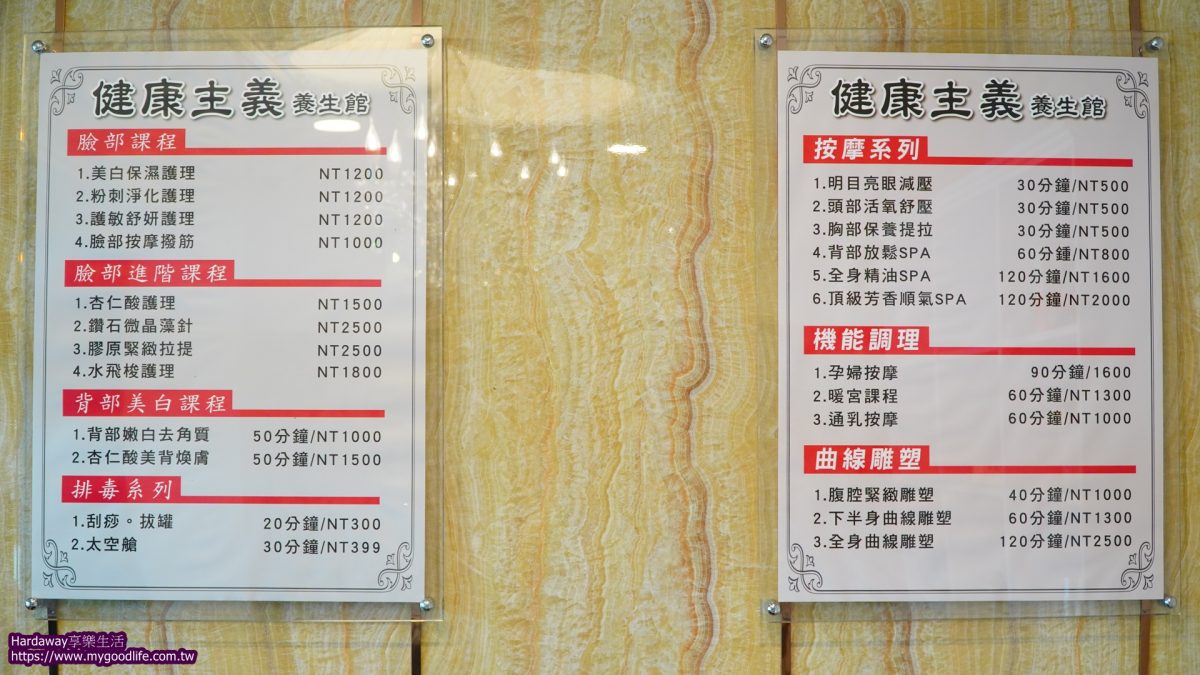 健康主義 養生館
臉部課程
1.美白保濕護理 NT1200
2.粉刺淨化護理 NT1200
3.護敏舒妍護理 NT1200
4.臉部按摩撥筋 NT1000
臉部進階課程
1.杏仁酸護理 NT1500
2.鑽石微晶藻針 NT2500
3.膠原緊緻拉提 NT2500
4.水飛梭護理 NT1800
背部美白課程
1.背部嫩白去角質 50分鐘/NT1000
2.杏仁酸美背煥膚 50分鐘/NT1500
排毒系列
1.刮痧。拔罐 20分鐘/NT300
2.太空艙 30分鐘/NT399
健康主義 養生館
按摩系列
1.明目亮眼減壓 30分鐘/NT500
2.頭部活氧舒壓 30分鐘/NT500
3.胸部保養提拉 30分鐘/NT500
4.背部放鬆SPA 60分鍾/NT800
5.全身精油SPA 120分鐘/NT1600
6.頂級芳香順氣SPA 120分鐘/NT2000
機能調理
1.孕婦按摩 90分鐘/1600
2.暖宮課程 60分鐘/NT1300
3.通乳按摩 60分鐘/NT1000
曲線雕塑
1.腹腔緊緻雕塑 40分鐘/NT1000
2.下半身曲線雕塑 60分鐘/NT1300
3.全身曲線雕塑 120分鐘/NT2500
Hardaway享樂生活
https://www.mygoodlife.com.tw